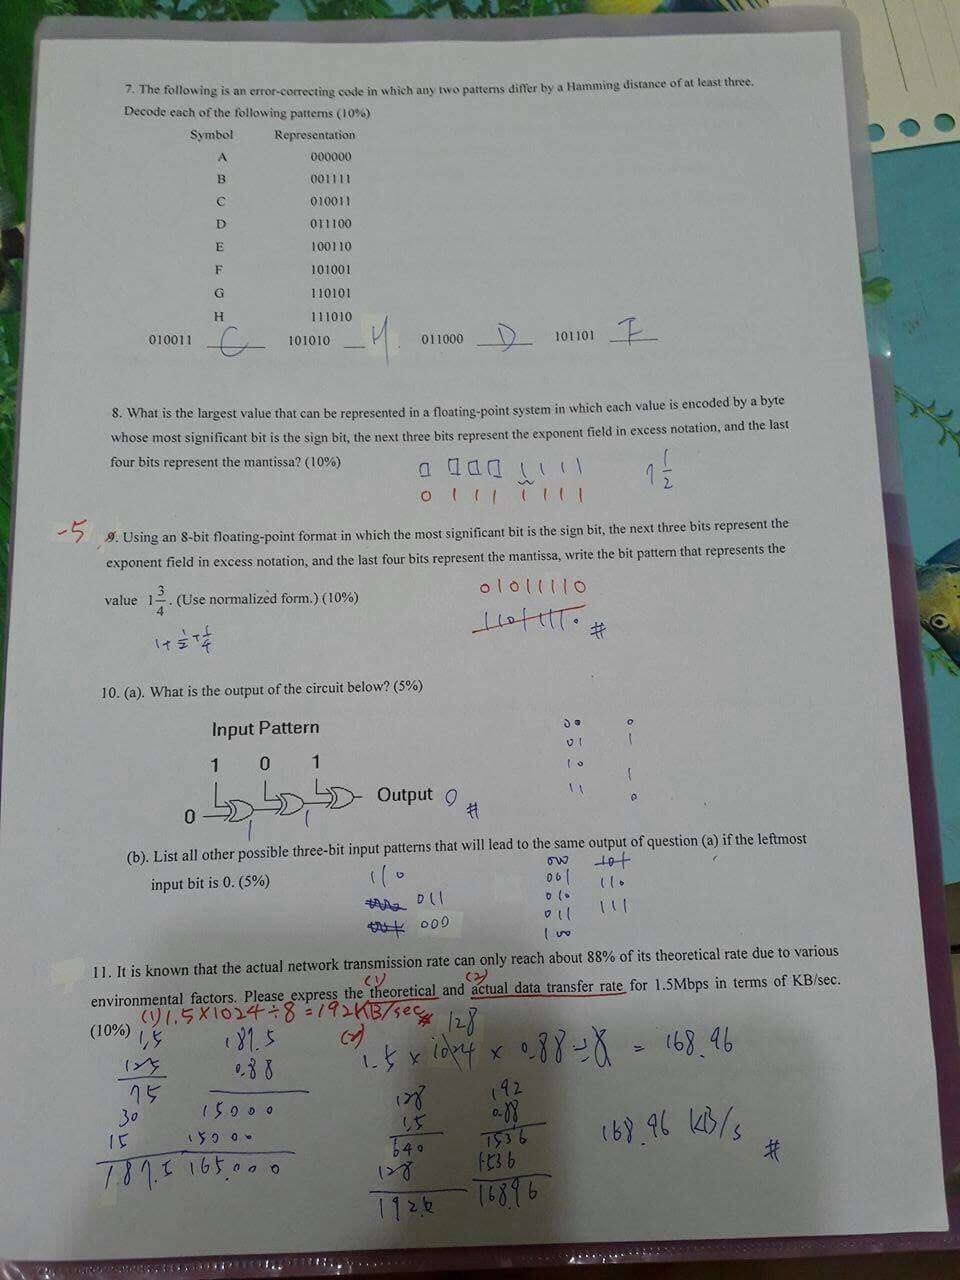 7. The following is an error-correcting code in which any two patterns differ by a Hamming distance of at least three.
Decode each of the following patterns (10%)
Symbol Representation
A 000000
B 001111
C 010011
D 011100
E 100110
F 101001
G 110101
H 111010
010011 C 101010 H 011000 D 101101 F
8. What is the largest value that can be represented in a floating-point system in which each value is encoded by a byte
whose most significant bit is the sign bit, the next three bits represent the exponent field in excess notation, and the last
four bits represent the mantissa? (10%)
0 000 1111 7 1/2
0 111 1111
-5 9. Using an 8-bit floating-point format in which the most significant bit is the sign bit, the next three bits represent the
exponent field in excess notation, and the last four bits represent the mantissa, write the bit pattern that represents the
value 1 3/4. (Use normalized form.) (10%) 01011110
1101 1110 #
1+1/2+1/4
10. (a). What is the output of the circuit below? (5%)
Input Pattern
1 0 1
0 Output 0 #
1 1
00 0
01 1
10 1
11 0
(b). List all other possible three-bit input patterns that will lead to the same output of question (a) if the leftmost
input bit is 0. (5%)
110
011
000
000 101
001 110
010 111
011
100
11. It is known that the actual network transmission rate can only reach about 88% of its theoretical rate due to various
(1) (2)
environmental factors. Please express the theoretical and actual data transfer rate for 1.5Mbps in terms of KB/sec.
(10%) (1) 1.5×1024÷8=192KB/sec#
(2) 128
1.5 × 1024 × 0.88 ÷ 8 = 168.96
1.5
125
75
30
15
187.5
187.5
0.88
15000
15000
165.000
128
1.5
640
128
192.0
192
0.88
1536
1536
16896
168.96 KB/s #